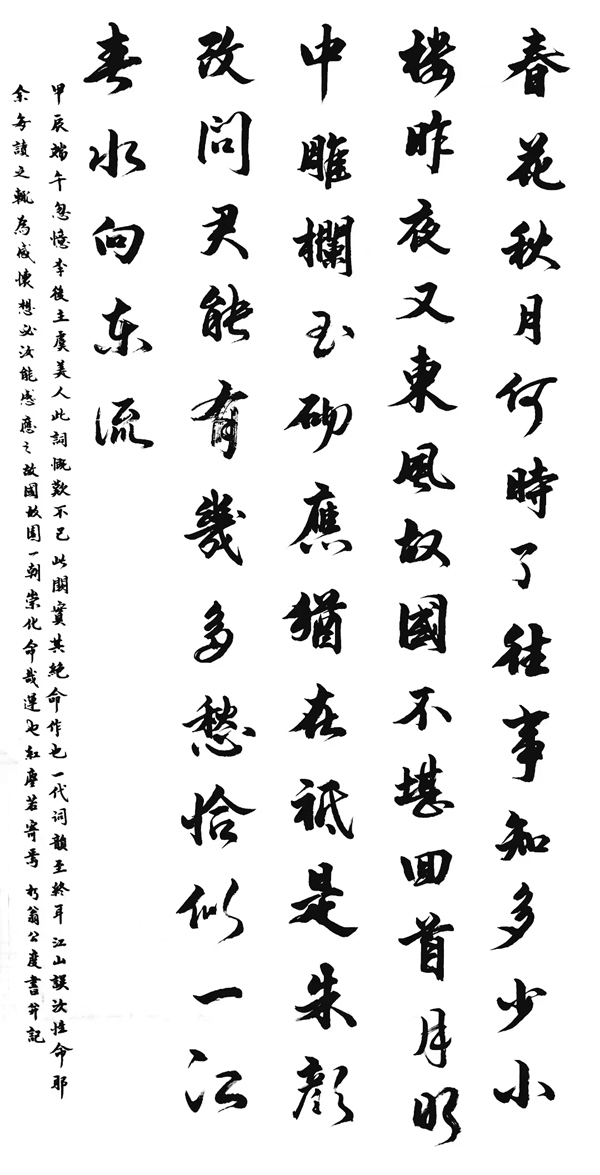 春花秋月何時了往事知多少小
楼昨夜又東風故國不堪回首月明
中雕欄玉砌應猶在祗是朱顏
改問君能有幾多愁恰似一江
春水向东流
甲辰端午忽憶李後主虞美人此詞慨歎不已此闋實其絕命作也一代词韻至終耳江山誤次性命耶
余每讀之輒為感懷想必汝能感應之故國故園一朝崇化命哉運也紅塵若寄焉 朽翁公度書并記